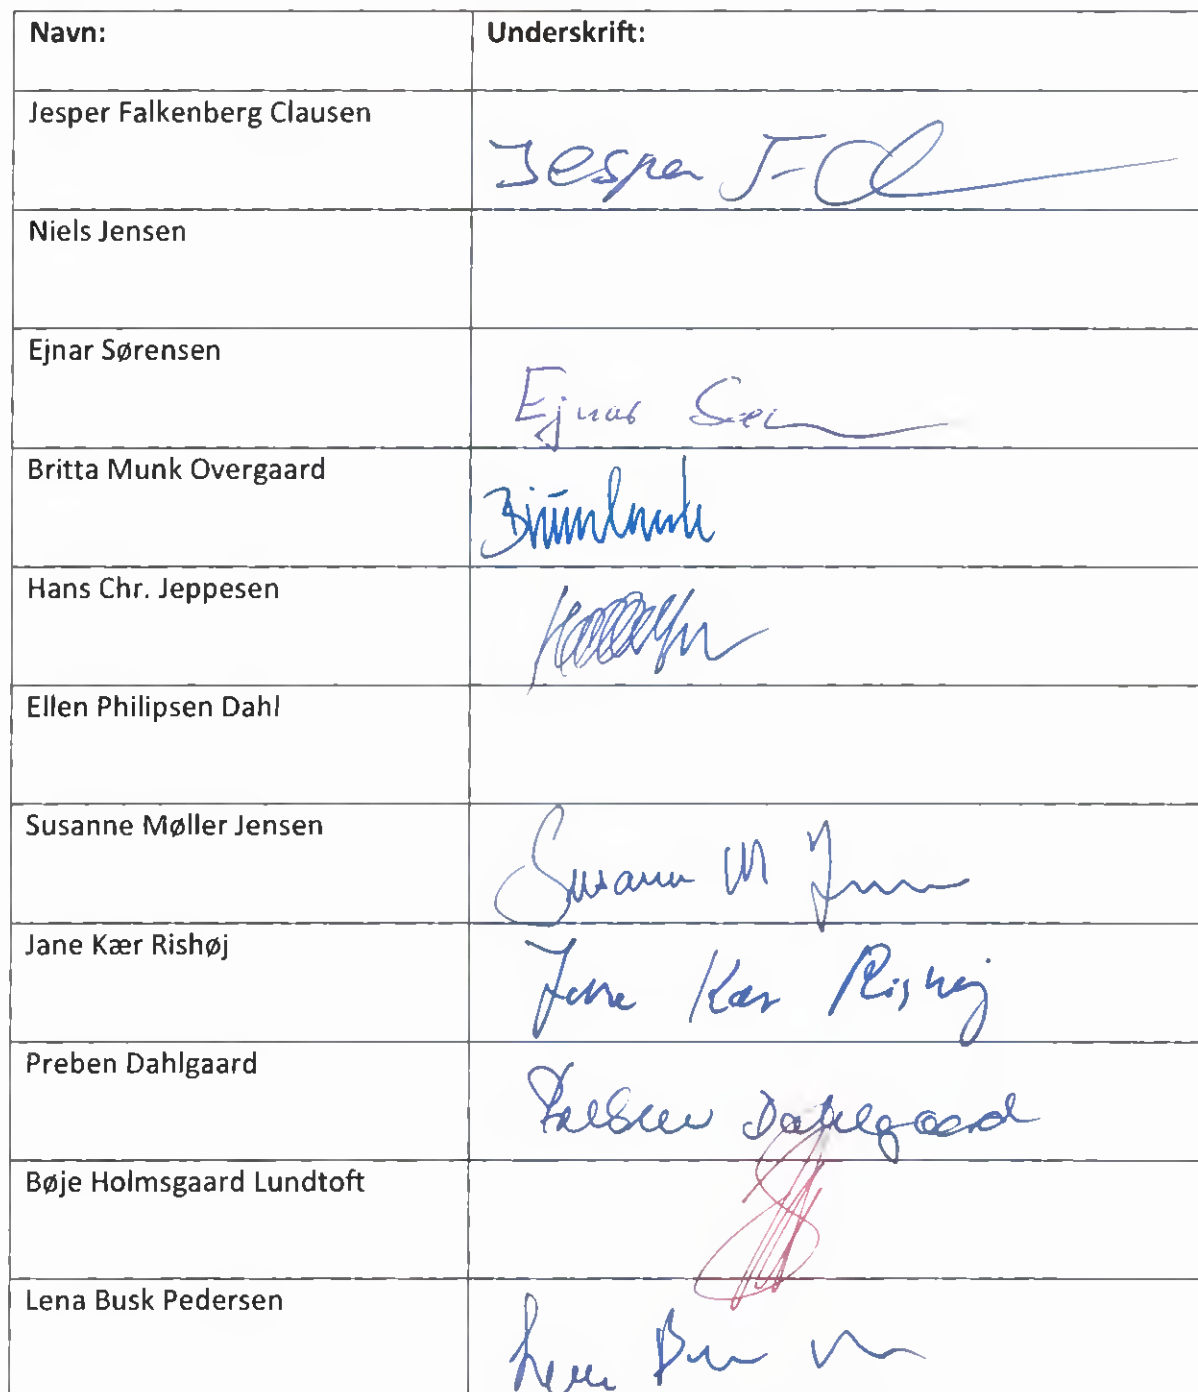 Navn: Underskrift:
Jesper Falkenberg Clausen
Jesper F C
Niels Jensen
Ejnar Sørensen
Ejnar
Britta Munk Overgaard
Hans Chr. Jeppesen
Ellen Philipsen Dahl
Susanne Møller Jensen
Susanne M Jensen
Jane Kær Rishøj
Jane Kær Rishøj
Preben Dahlgaard
Preben Dahlgaard
Bøje Holmsgaard Lundtoft
Lena Busk Pedersen
Lena